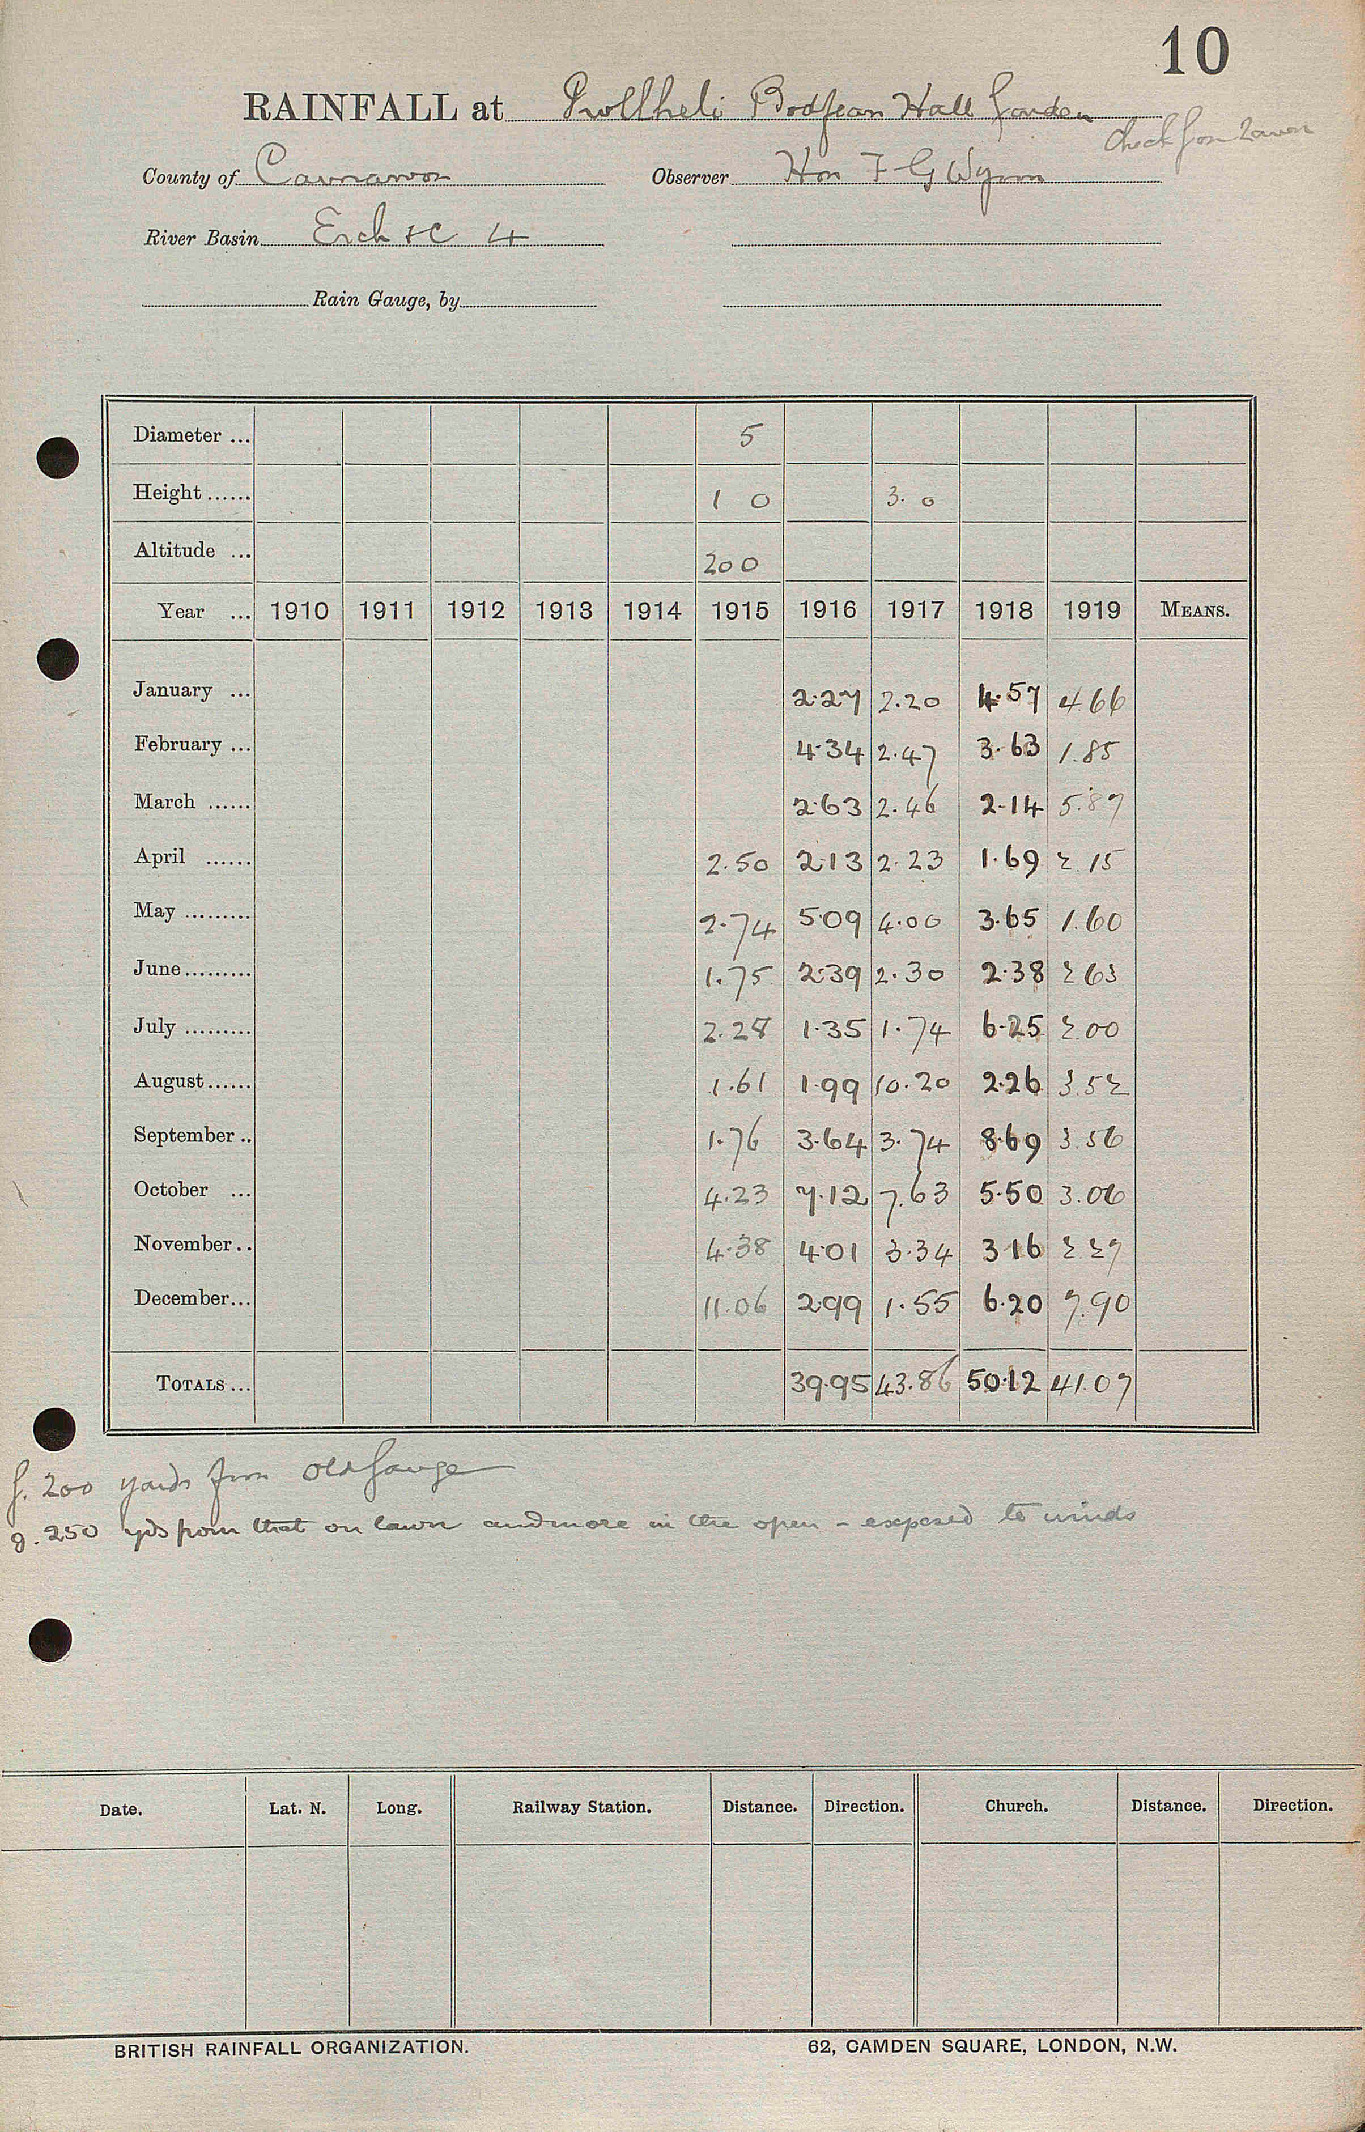 10
RAINFALL at Pwllheli Bodfean Hall Garden
Check from Lawn
County of Carnarvon Observer Hon F G Wynn
River Basin Erch &c 4
Rain Gauge, by
Diameter ... 5
Height ...... 1 0 3. 0
Altitude ... 200
Year ... 1910 1911 1912 1913 1914 1915 1916 1917 1918 1919 MEANS.
January ... 2.27 2.20 4.57 4.66
February ... 4.34 2.47 3.63 1.85
March ...... 2.63 2.46 2.14 5.87
April ...... 2.50 2.13 2.23 1.69 2 15
May ......... 2.74 5.09 4.00 3.65 1.60
June ......... 1.75 2.39 2.30 2.38 2 63
July ......... 2.28 1.35 1.74 6.25 2.00
August ...... 1.61 1.99 10.20 2.26 3.52
September .. 1.76 3.64 3.74 8.69 3.56
October ... 4.23 7.12 7.63 5.50 3.06
November .. 4.38 4.01 3.34 3.16 2.27
December ... 11.06 2.99 1.55 6.20 7.90
TOTALS ... 39.95 43.86 50.12 41.07
f. 200 yards from Old Gauge
g. 250 yds from that on lawn and more in the open - exposed to winds
Date. Lat. N. Long. Railway Station. Distance. Direction. Church. Distance. Direction.
BRITISH RAINFALL ORGANIZATION. 62, CAMDEN SQUARE, LONDON, N.W.